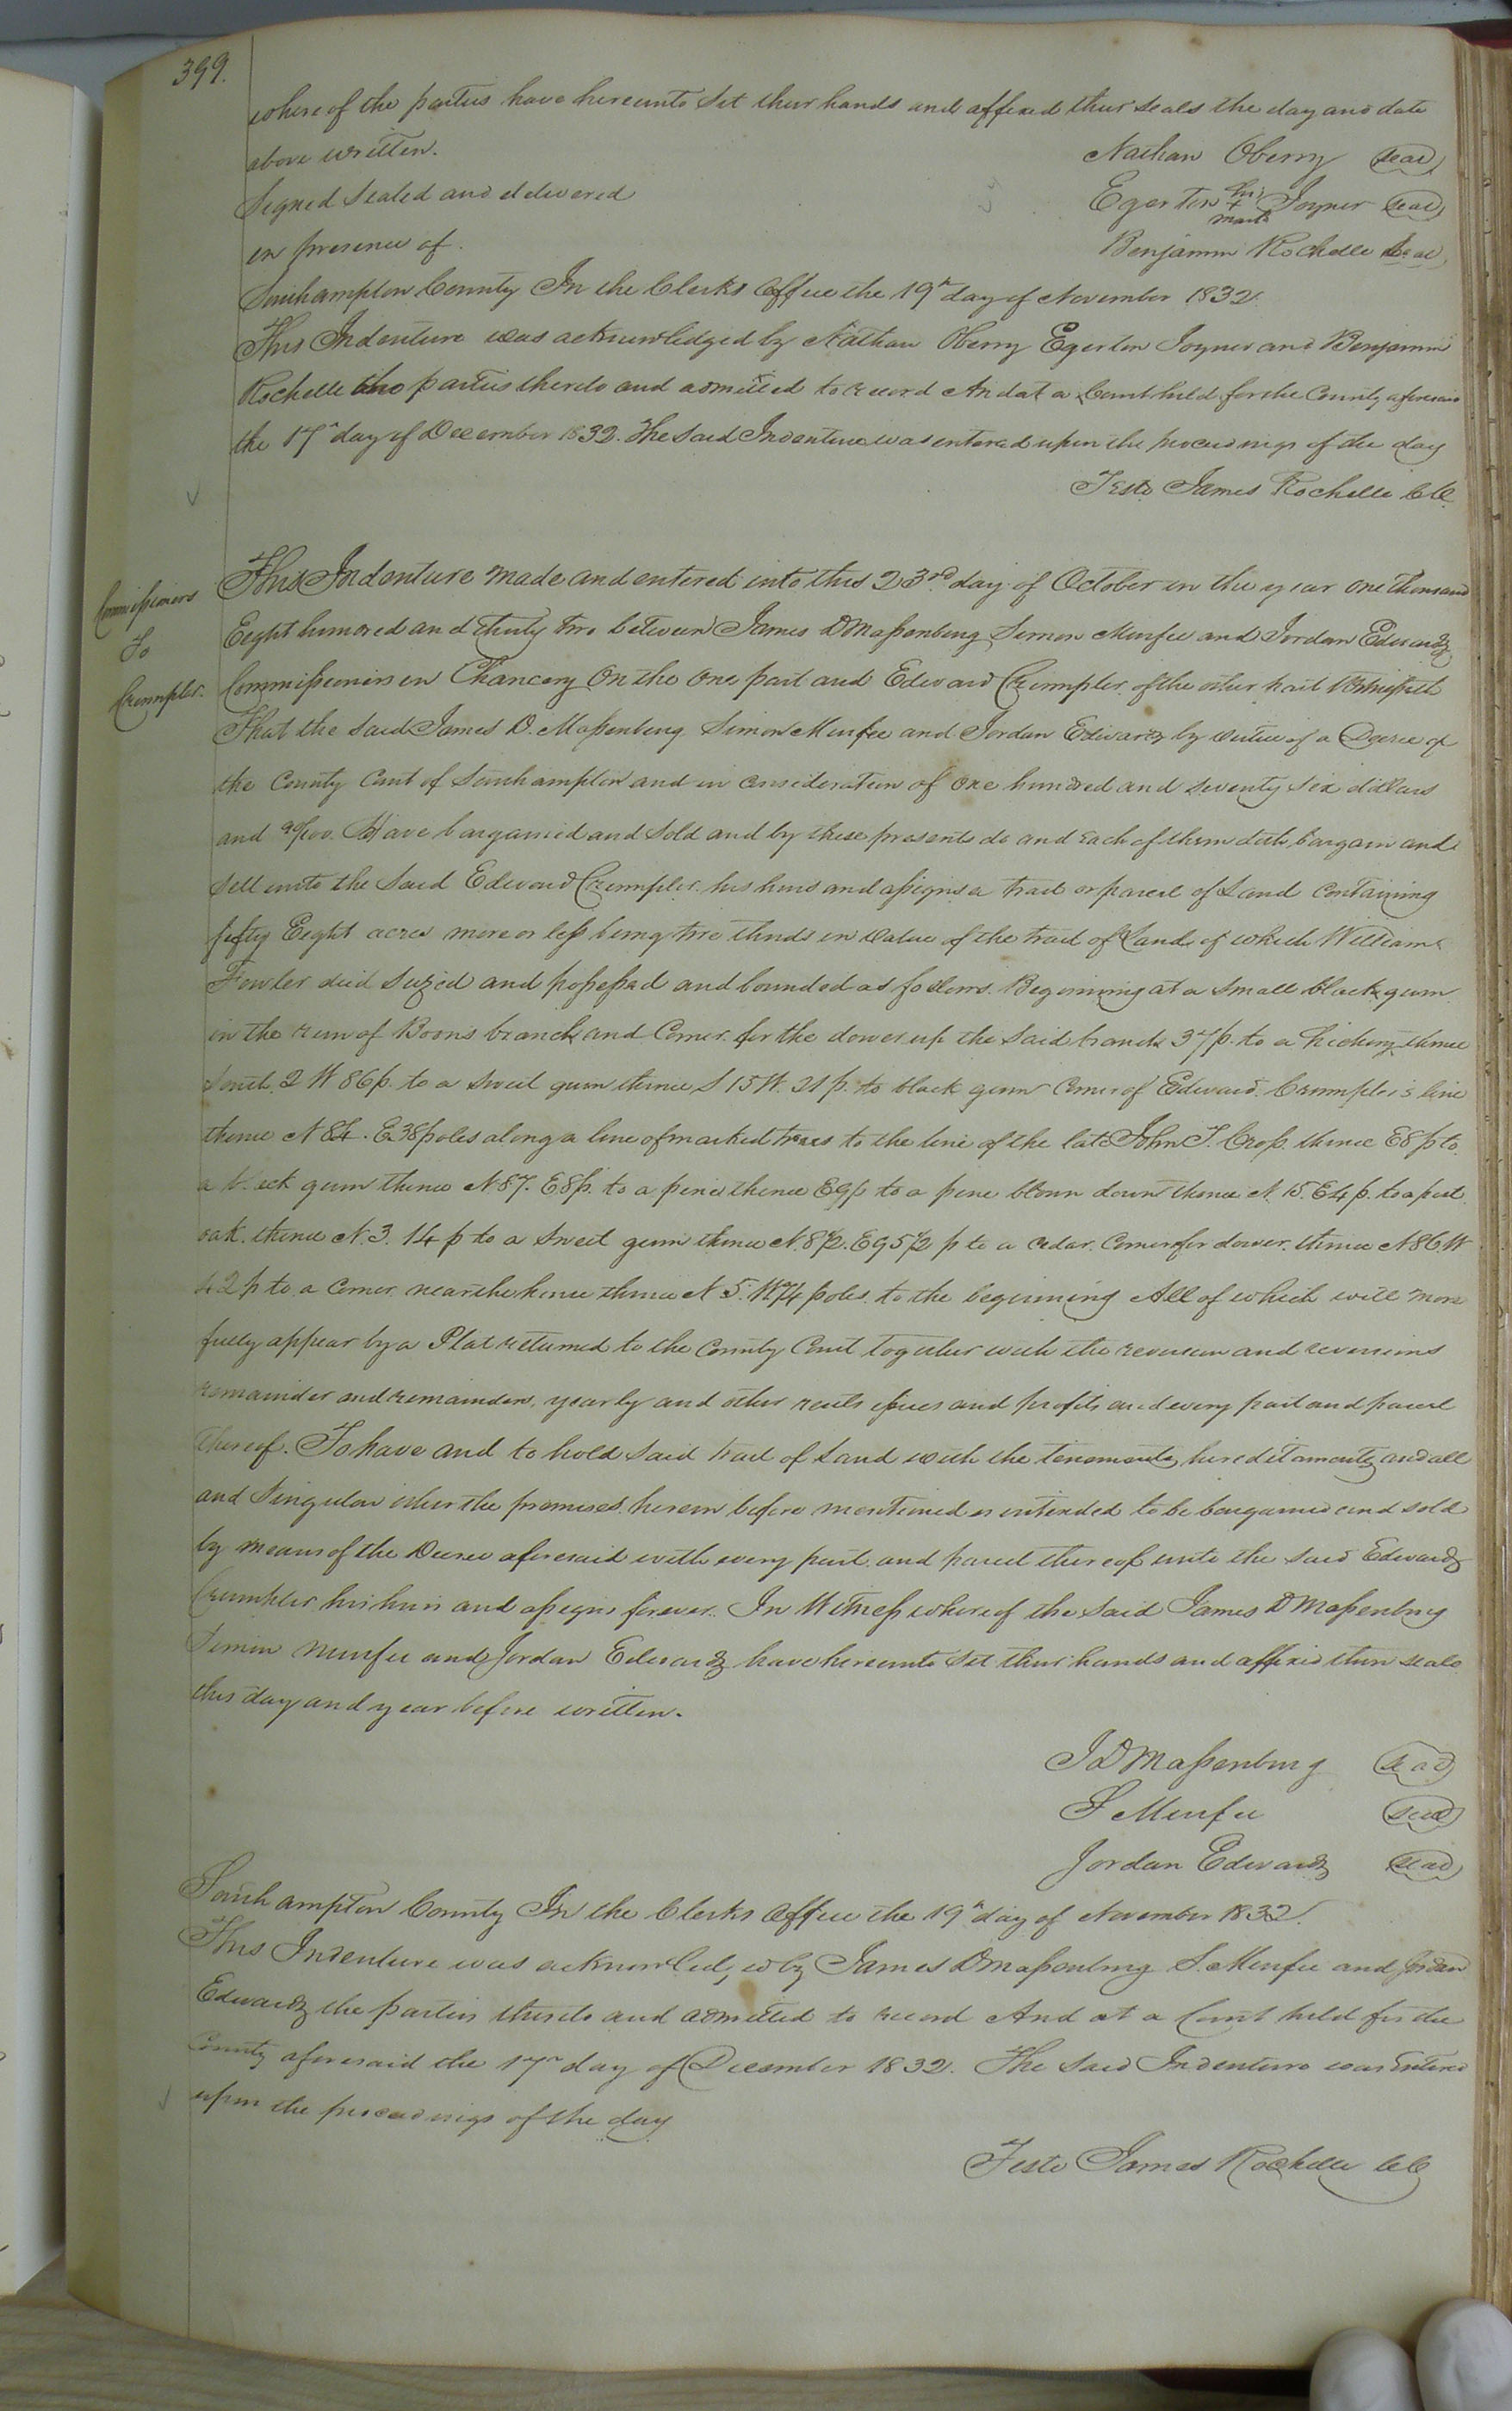 399.
whereof the parties have hereunto Set their hands and affixed their Seals the day and date
above written.
Nathan Oberry Seal
Signed Sealed and delivered
Egerton his + mark Joyner Seal
in presence of.
Benjamin Rochelle Seal
Southampton County In the Clerks Office the 19th day of November 1832.
This Indenture was acknowledged by Nathan Oberry Egerton Joyner and Benjamin
Rochelle the parties thereto and admitted to record And at a Court held for the County aforesaid
the 17th day of December 1832. The Said Indenture was entered upon the proceedings of the day
Teste James Rochelle CC
Commissioners
To
Crumpler.
This Indenture made and entered into this 23rd day of October in the year one Thousand
Eeight hundred and thirty two between James D Massenburg Simon Murfee and Jordan Edwards
Commissioners in Chancery On the One part and Edward Crumpler of the other part Witnesseth
That the Said James D. Massenburg Simon Murfee and Jordan Edwards by virtue of a Decree of
the County Court of Southampton and in consideration of One hundred and Seventy Six dollars
and 90/100. Have bargained and Sold and by these presents do and each of them doth bargain and
Sell unto the Said Edward Crumpler his heirs and assigns a tract or parcel of Land Containing
fifty Eight acres more or less being two thirds in value of the tract of Land of which William
Fowler died Seized and possessed and bounded as follows. Beginning at a Small black gum
in the run of Boons branch and Corner for the dower up the Said branch 37 p. to a hickory thence
South 2 W 86 p. to a Sweet gum thence S 15 W. 21 p. to black gum Corner of Edward Crumpler's line
thence N 84. E 38 poles along a line of marked trees to the line of the late John T. Cross. thence E 8 p to
a black gum thence N 87. E 8 p. to a pine thence E 9 p to a pine blown down thence N. 15. E 4 p. to a post
oak. thence N. 3. 14 p to a Sweet gum thence N. 8 1/2. E 95 1/2 p to a cedar. Corner for dower. thence N 86. W
42 p to a Corner near the house thence N 5. W. 74 poles. to the beginning All of which will more
fully appear by a Plat returned to the County Court together with the reversion and reversions
remainder and remainders, yearly and other rents issues and profits and every part and parcel
thereof. To have and to hold Said tract of Land with the tenements, hereditaments and all
and Singular other the premises herein before mentioned or intended to be bargained and sold
by means of the Decree aforesaid with every part and parcel thereof unto the Said Edward
Crumpler his heirs and assigns forever. In Witness whereof the Said James D Massenburg
Simon Murfee and Jordan Edwards have hereunto Set their hands and affixed their seals
this day and year before written.
J D Massenburg Seal
S Murfee Seal
Jordan Edwards Seal
Southampton County In the Clerks Office the 19th day of November 1832.
This Indenture was acknowledged by James D Massenburg S. Murfee and Jordan
Edwards the parties thereto and admitted to record And at a Court held for the
County aforesaid the 17th day of December 1832. The Said Indenture was Entered
upon the proceedings of the day
Teste James Rochelle CC